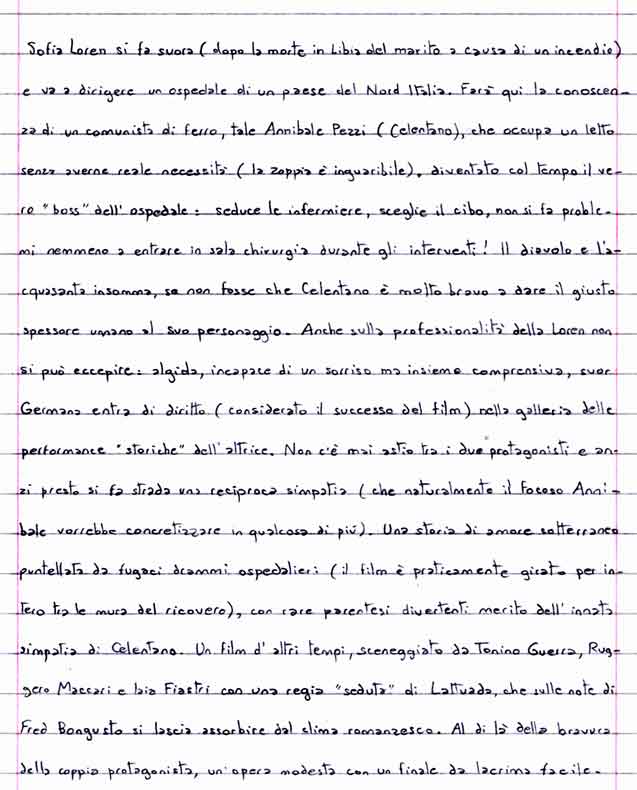 Sofia Loren si fa suora (dopo la morte in Libia del marito a causa di un incendio)
e va a dirigere un ospedale di un paese del Nord Italia. Farà qui la conoscen-
za di un comunista di ferro, tale Annibale Pezzi (Celentano), che occupa un letto
senza averne reale necessità (la zoppia è inguaribile), diventato col tempo il ve-
ro "boss" dell'ospedale: seduce le infermiere, sceglie il cibo, non si fa proble-
mi nemmeno a entrare in sala chirurgia durante gli interventi! Il diavolo e l'a-
cquasanta insomma, se non fosse che Celentano è molto bravo a dare il giusto
spessore umano al suo personaggio. Anche sulla professionalità della Loren non
si può eccepire: algida, incapace di un sorriso ma insieme comprensiva, suor
Germana entra di diritto (considerato il successo del film) nella galleria delle
performance "storiche" dell'attrice. Non c'è mai astio tra i due protagonisti e an-
zi presto si fa strada una reciproca simpatia (che naturalmente il focoso Anni-
bale vorrebbe concretizzare in qualcosa di più). Una storia di amore sotterraneo
puntellata da fugaci drammi ospedalieri (il film è praticamente girato per in-
tero tra le mura del ricovero), con rare parentesi divertenti merito dell'innata
simpatia di Celentano. Un film d'altri tempi, sceneggiato da Tonino Guerra, Rug-
gero Maccari e Iaia Fiastri con una regia "seduta" di Lattuada, che sulle note di
Fred Bongusto si lascia assorbire dal clima romanzesco. Al di là della bravura
della coppia protagonista, un'opera modesta con un finale da lacrima facile.